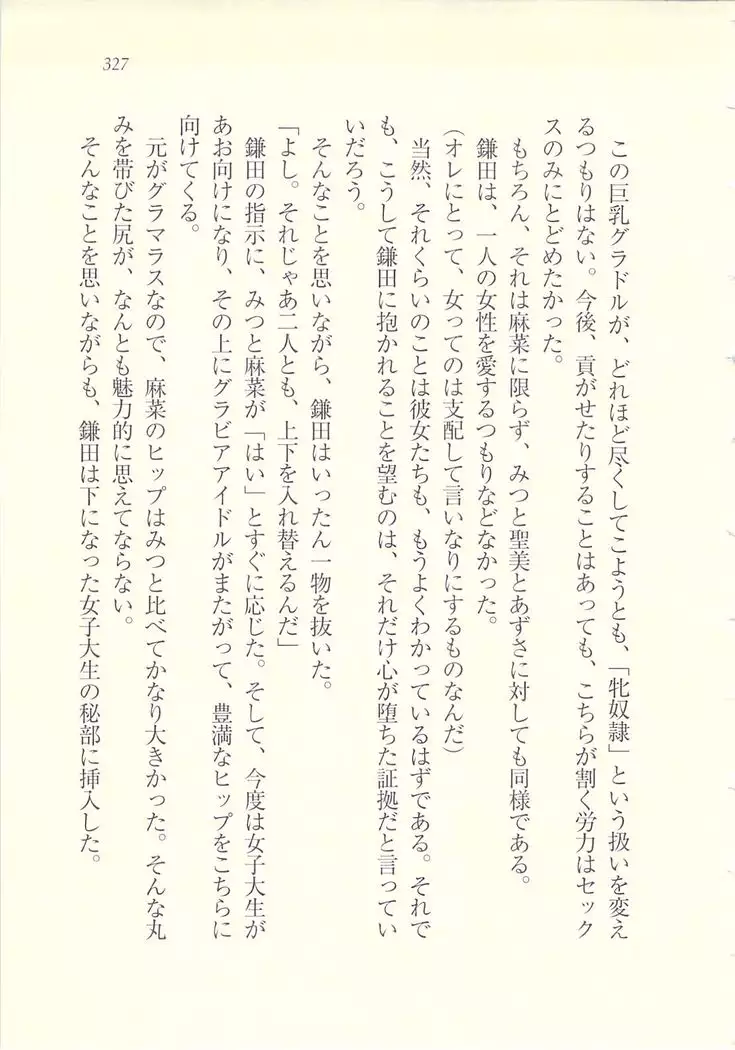 327
この巨乳グラドルが、どれほど尽くしてこようとも、「牝奴隷」という扱いを変え
るつもりはない。今後、貢がせたりすることはあっても、こちらが割く労力はセック
スのみにとどめたかった。
もちろん、それは麻菜に限らず、みつと聖美とあずさに対しても同様である。
鎌田は、一人の女性を愛するつもりなどなかった。
（オレにとって、女ってのは支配して言いなりにするものなんだ）
当然、それくらいのことは彼女たちも、もうよくわかっているはずである。それで
も、こうして鎌田に抱かれることを望むのは、それだけ心が堕ちた証拠だと言ってい
いだろう。
そんなことを思いながら、鎌田はいったん一物を抜いた。
「よし。それじゃあ二人とも、上下を入れ替えるんだ」
鎌田の指示に、みつと麻菜が「はい」とすぐに応じた。そして、今度は女子大生が
あお向けになり、その上にグラビアアイドルがまたがって、豊満なヒップをこちらに
向けてくる。
元がグラマラスなので、麻菜のヒップはみつと比べてかなり大きかった。そんな丸
みを帯びた尻が、なんとも魅力的に思えてならない。
そんなことを思いながらも、鎌田は下になった女子大生の秘部に挿入した。